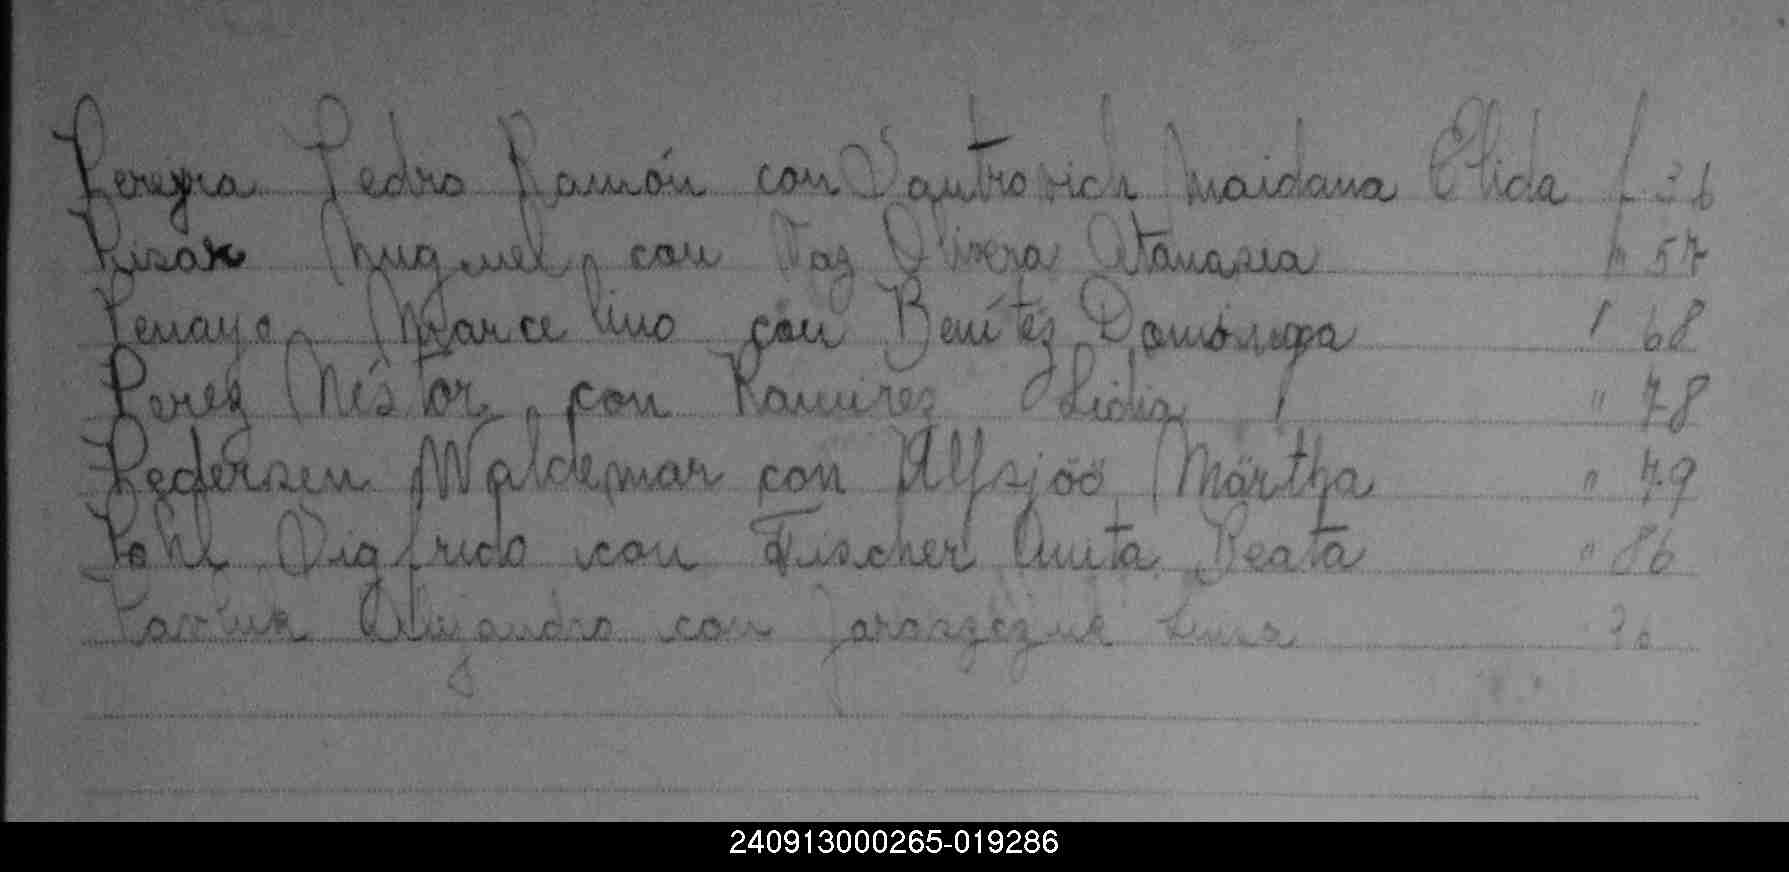 Pereyra Pedro Ramón con Santrovich Maidana Elida f 36
Miguel, con Paz Olivera Atanasia " 57
Penayo, Marcelino con Benítez Dominga " 68
Perez Néstor, con Ramirez Lidia " 78
Pedersen Waldemar con Alfsjöö Martha " 79
Pohl Sigfrido con Fischer Anita Beata " 86
Alejandro con
240913000265-019286